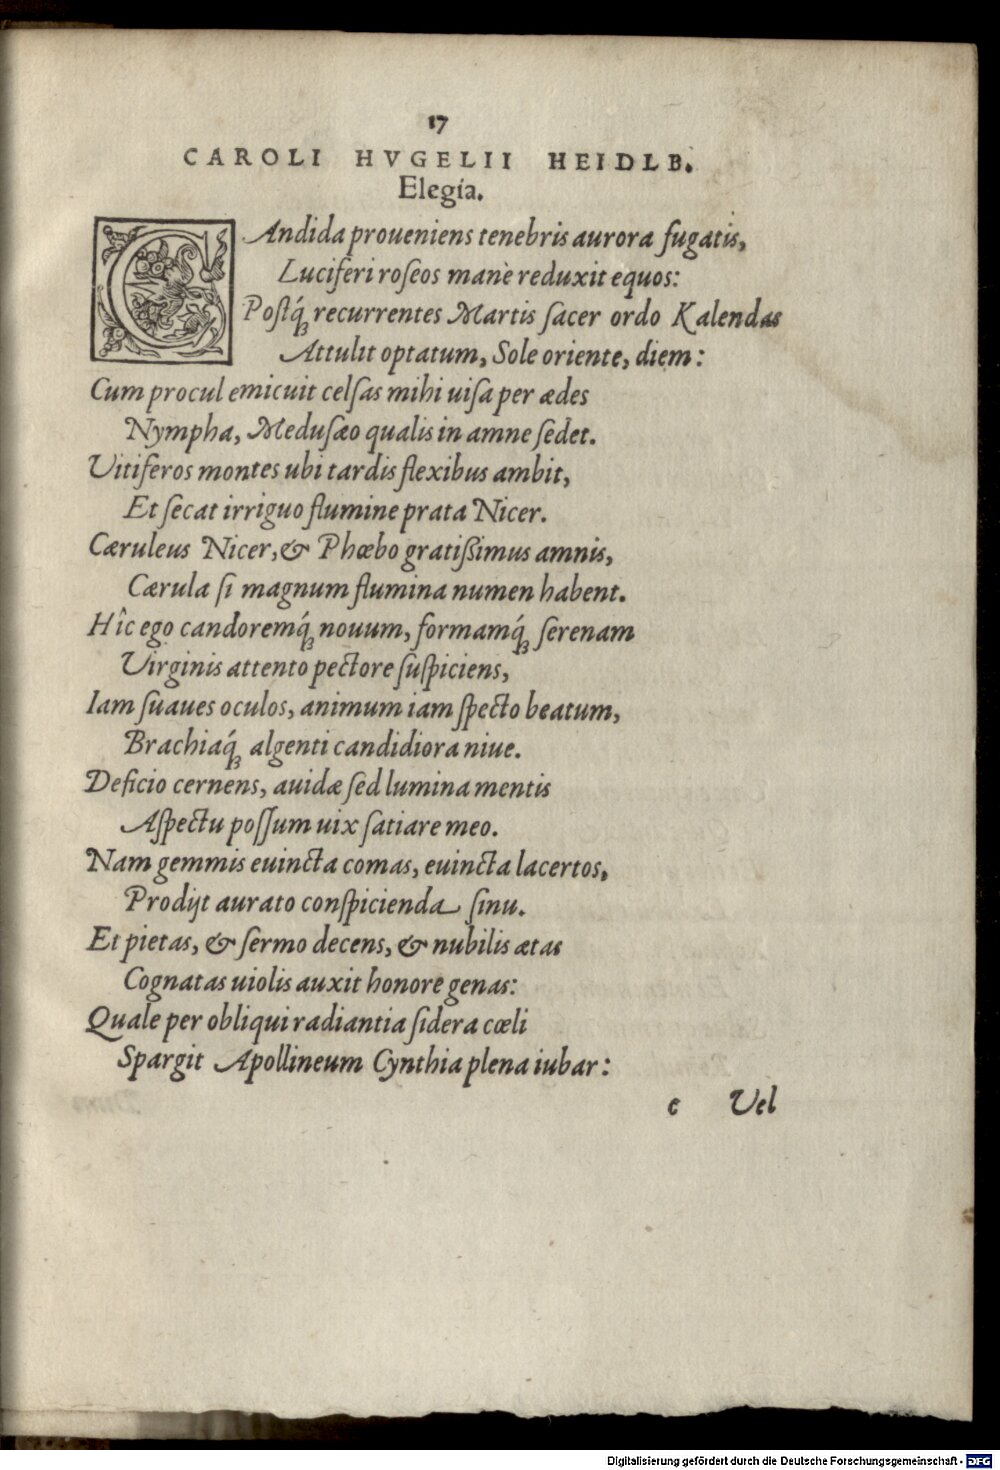 17
CAROLI HVGELII HEIDLB.
Elegia.
CAndida proueniens tenebris aurora fugatis,
Luciferi roseos manè reduxit equos:
Postq́; recurrentes Martis sacer ordo Kalendas
Attulit optatum, Sole oriente, diem:
Cum procul emicuit celsas mihi uisa per ædes
Nympha, Medusæo qualis in amne sedet.
Vitiferos montes ubi tardis flexibus ambit,
Et secat irriguo flumine prata Nicer.
Cæruleus Nicer, & Phœbo gratißimus amnis,
Cærula si magnum flumina numen habent.
Hîc ego candoremq́; nouum, formamq́; serenam
Virginis attento pectore suspiciens,
Iam suaues oculos, animum iam specto beatum,
Brachiaq́; algenti candidiora niue.
Deficio cernens, auidæ sed lumina mentis
Aspectu possum uix satiare meo.
Nam gemmis euincta comas, euincta lacertos,
Prodijt aurato conspicienda sinu.
Et pietas, & sermo decens, & nubilis ætas
Cognatas uiolis auxit honore genas:
Quale per obliqui radiantia sidera cœli
Spargit Apollineum Cynthia plena iubar:
c Vel
Digitalisierung gefördert durch die Deutsche Forschungsgemeinschaft - DFG